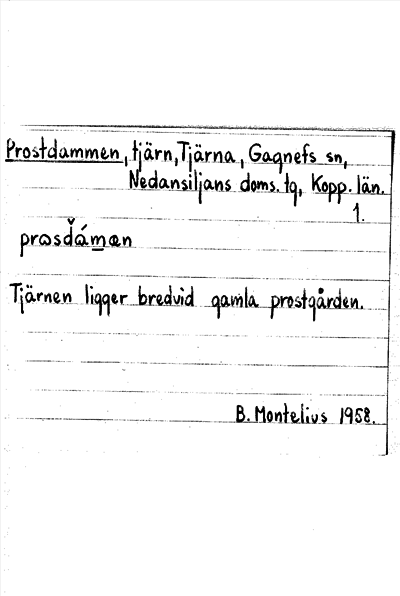 Prostdammen, tjärn, Tjärna, Gagnefs sn,
Nedansiljans doms. tg, Kopp. län.
1.
prɷsd̆áman
Tjärnen ligger bredvid gamla prostgården.
B. Montelius 1958.